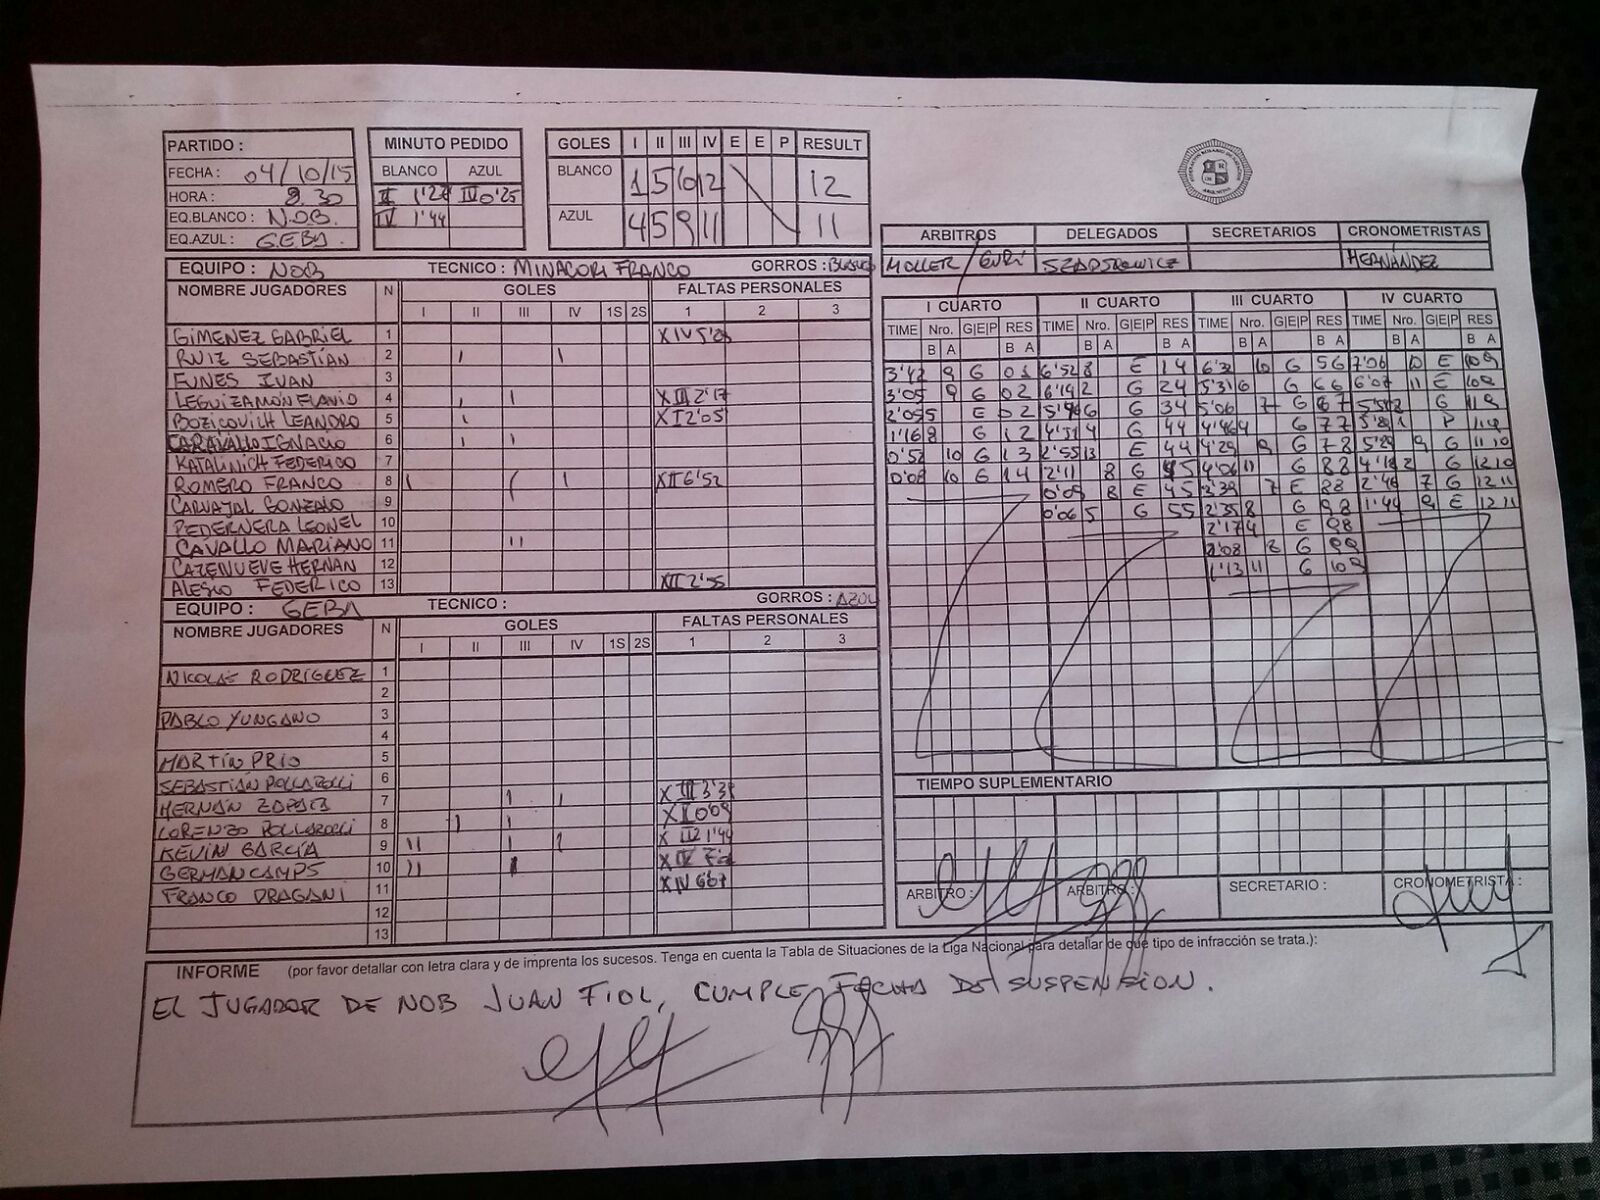 PARTIDO :
FECHA : 04/10/15
HORA : 8.30
EQ.BLANCO : N.O.B.
EQ.AZUL : G.E.B.A.
MINUTO PEDIDO
BLANCO AZUL
II 1'27 IV 0'25
IV 1'44
GOLES I II III IV E E P RESULT
BLANCO 1 5 10 12 12
AZUL 4 5 9 11 11
ARBITROS DELEGADOS SECRETARIOS CRONOMETRISTAS
MOLLER / HERNÁNDEZ
EQUIPO : NOB TECNICO : MINACORI FRANCO GORROS : BLANCO
NOMBRE JUGADORES N GOLES FALTAS PERSONALES
I II III IV 1S 2S 1 2 3
GIMENEZ GABRIEL 1
RUIZ SEBASTIÁN 2
FUNES IVAN 3
LEGUIZAMON FLAVIO 4 X III 2'17
BOZICOVICH LEANDRO 5 X I 2'05
CARAVALLO IGNACIO 6
KATALINICH FEDERICO 7
ROMERO FRANCO 8 X II 6'52
CARVAJAL GONZALO 9
PEDERNERA LEONEL 10
CAVALLO MARIANO 11
CAZENUEVE HERNAN 12
ALESSO FEDERICO 13 X II 2'55
EQUIPO : GEBA TECNICO : GORROS : AZUL
NOMBRE JUGADORES N GOLES FALTAS PERSONALES
I II III IV 1S 2S 1 2 3
NICOLAS RODRIGUEZ 1
2
PABLO YUNGANO 3
4
MARTÍN PRIO 5
SEBASTIÁN 6
HERNÁN ZAPATA 7
LORENZO 8
KEVIN GARCÍA 9
GERMAN CAMPS 10
FRANCO DRAGANI 11
12
13
I CUARTO II CUARTO III CUARTO IV CUARTO
TIME Nro. G|E|P RES TIME Nro. G|E|P RES TIME Nro. G|E|P RES TIME Nro. G|E|P RES
B A B A B A B A B A B A B A B A
3'42 9 G 01 6'52 8 E 14 6'32 10 G 56 7'06 10 E 10 9
3'05 9 G 02 6'14 2 G 24 5'31 6 G 66 6'07 11 E 10 9
2'05 5 E 02 6 G 34 5'06 7 G 67 2 G 11 9
1'16 8 G 12 4'31 4 G 44 4'46 4 G 77 1 P 11 9
0'52 10 G 13 2'55 13 E 44 4'29 9 G 78 9 G 11 10
10 G 14 2'11 8 G 45 4'06 11 G 88 2 G 12 10
8 E 45 7 E 88 7 G 12 11
0'06 5 G 55 2'35 8 G 98 1'44 9 E 12 11
2'17 4 E 98
2'08 8 G 99
1'13 11 G 10 9
TIEMPO SUPLEMENTARIO
ARBITRO : ARBITRO : SECRETARIO : CRONOMETRISTA :
INFORME (por favor detallar con letra clara y de imprenta los sucesos. Tenga en cuenta la Tabla de Situaciones de la Liga Nacional para detallar de que tipo de infracción se trata.):
EL JUGADOR DE NOB JUAN FIOL, CUMPLE FECHA DE SUSPENSION.